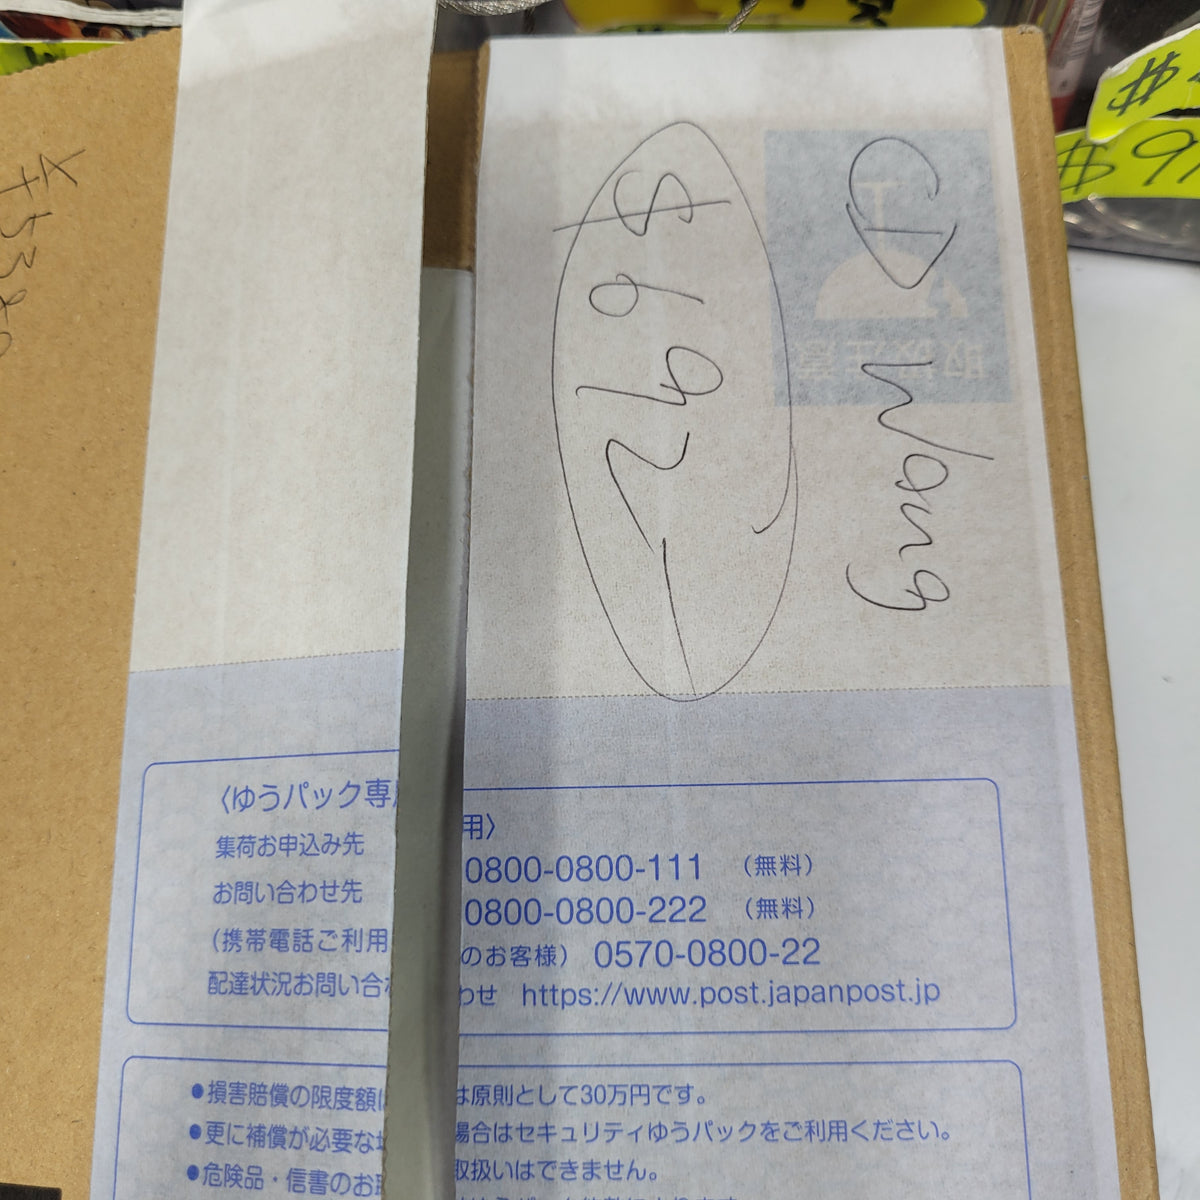 CD Wang
$692
〈ゆうパック専用〉
集荷お申込み先 0800-0800-111 (無料)
お問い合わせ先 0800-0800-222 (無料)
(携帯電話ご利用のお客様) 0570-0800-22
配達状況お問い合わせ https://www.post.japanpost.jp
●損害賠償の限度額は原則として30万円です。
●更に補償が必要な場合はセキュリティゆうパックをご利用ください。
●危険品・信書のお取扱いはできません。
取扱注意